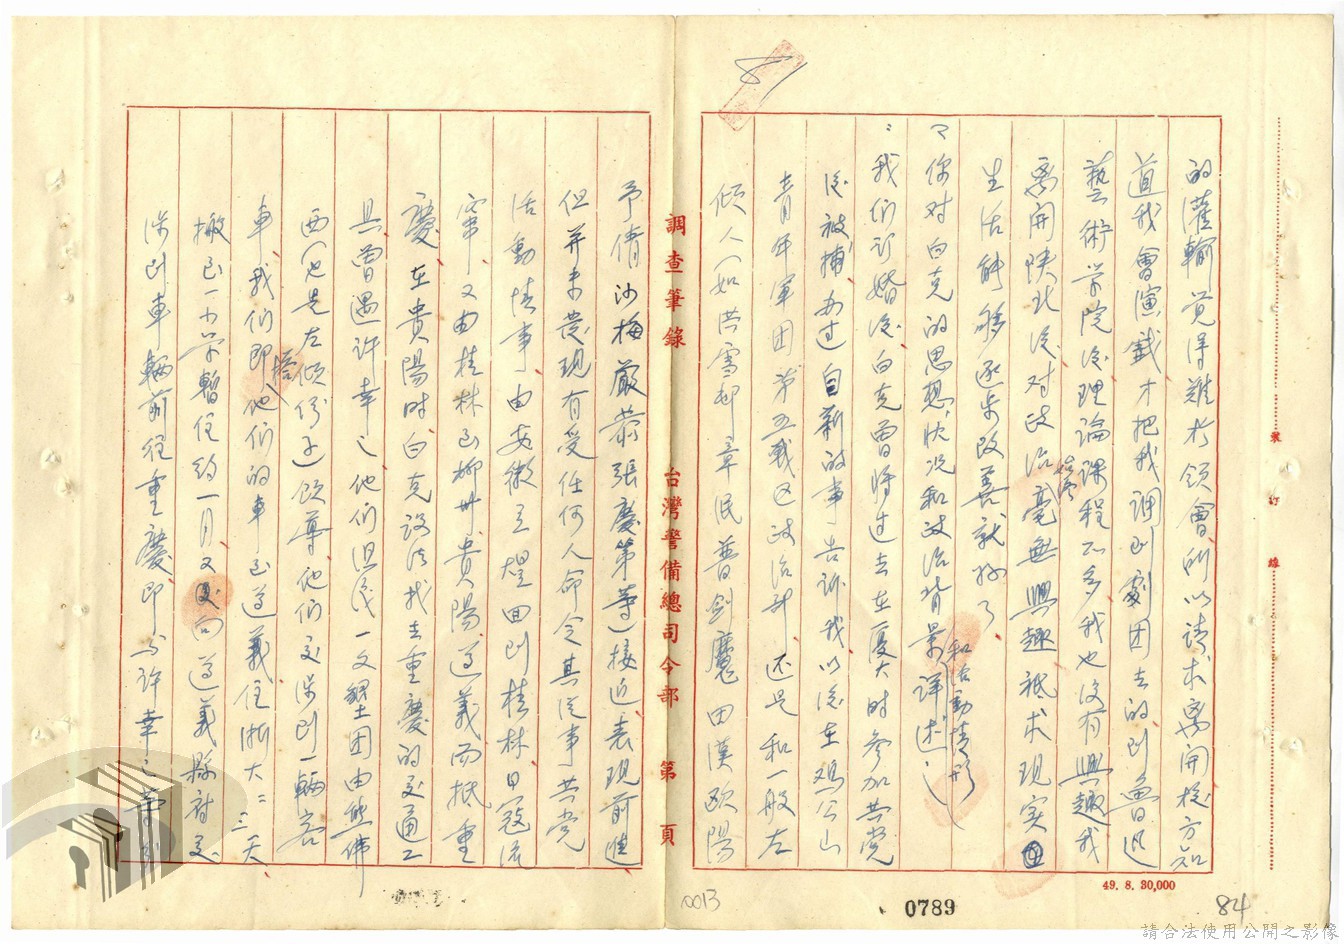 的灌輸覺得難於領會所以請求离開校方知
道我會演戲才把我調到劇团去的到魯迅
藝術学院後理論課程不多我也沒有興趣我
离開陝北後对政治毫無興趣祇求現实
生活能够逐步改善就好了
問你对白克的思想狀况和政治背景和活動情形詳述
答我们訂婚後白克曾將过去在厦大时参加共党
後被捕办过自新的事告訴我以後在鸡公山
青年軍团第五战区政治部还是和一般左
傾人(如洪雪邨章泯普劍魔田漢欧陽
調查筆錄 台灣警備總司令部 第 頁
予倩沙梅嚴恭張慶第等)接近表現前進
但并未發現有受任何人命令其從事共党
活動情事由安徽立煌回到桂林日寇流
竄又由桂林至柳州貴陽遵義而抵重
慶在貴陽时白克設法找去重慶的交通工
具曾遇許幸之他们
西(也是左傾份子)領導他们交涉到一輛客
車我们即搭他们的車至遵義住浙大二三天
搬至一小学暫住約一月又向遵義縣府交
涉到車輛前往重慶即与許幸之等
裝 訂 線
49. 8. 30,000
0013
0789
84
請合法使用公開之影像